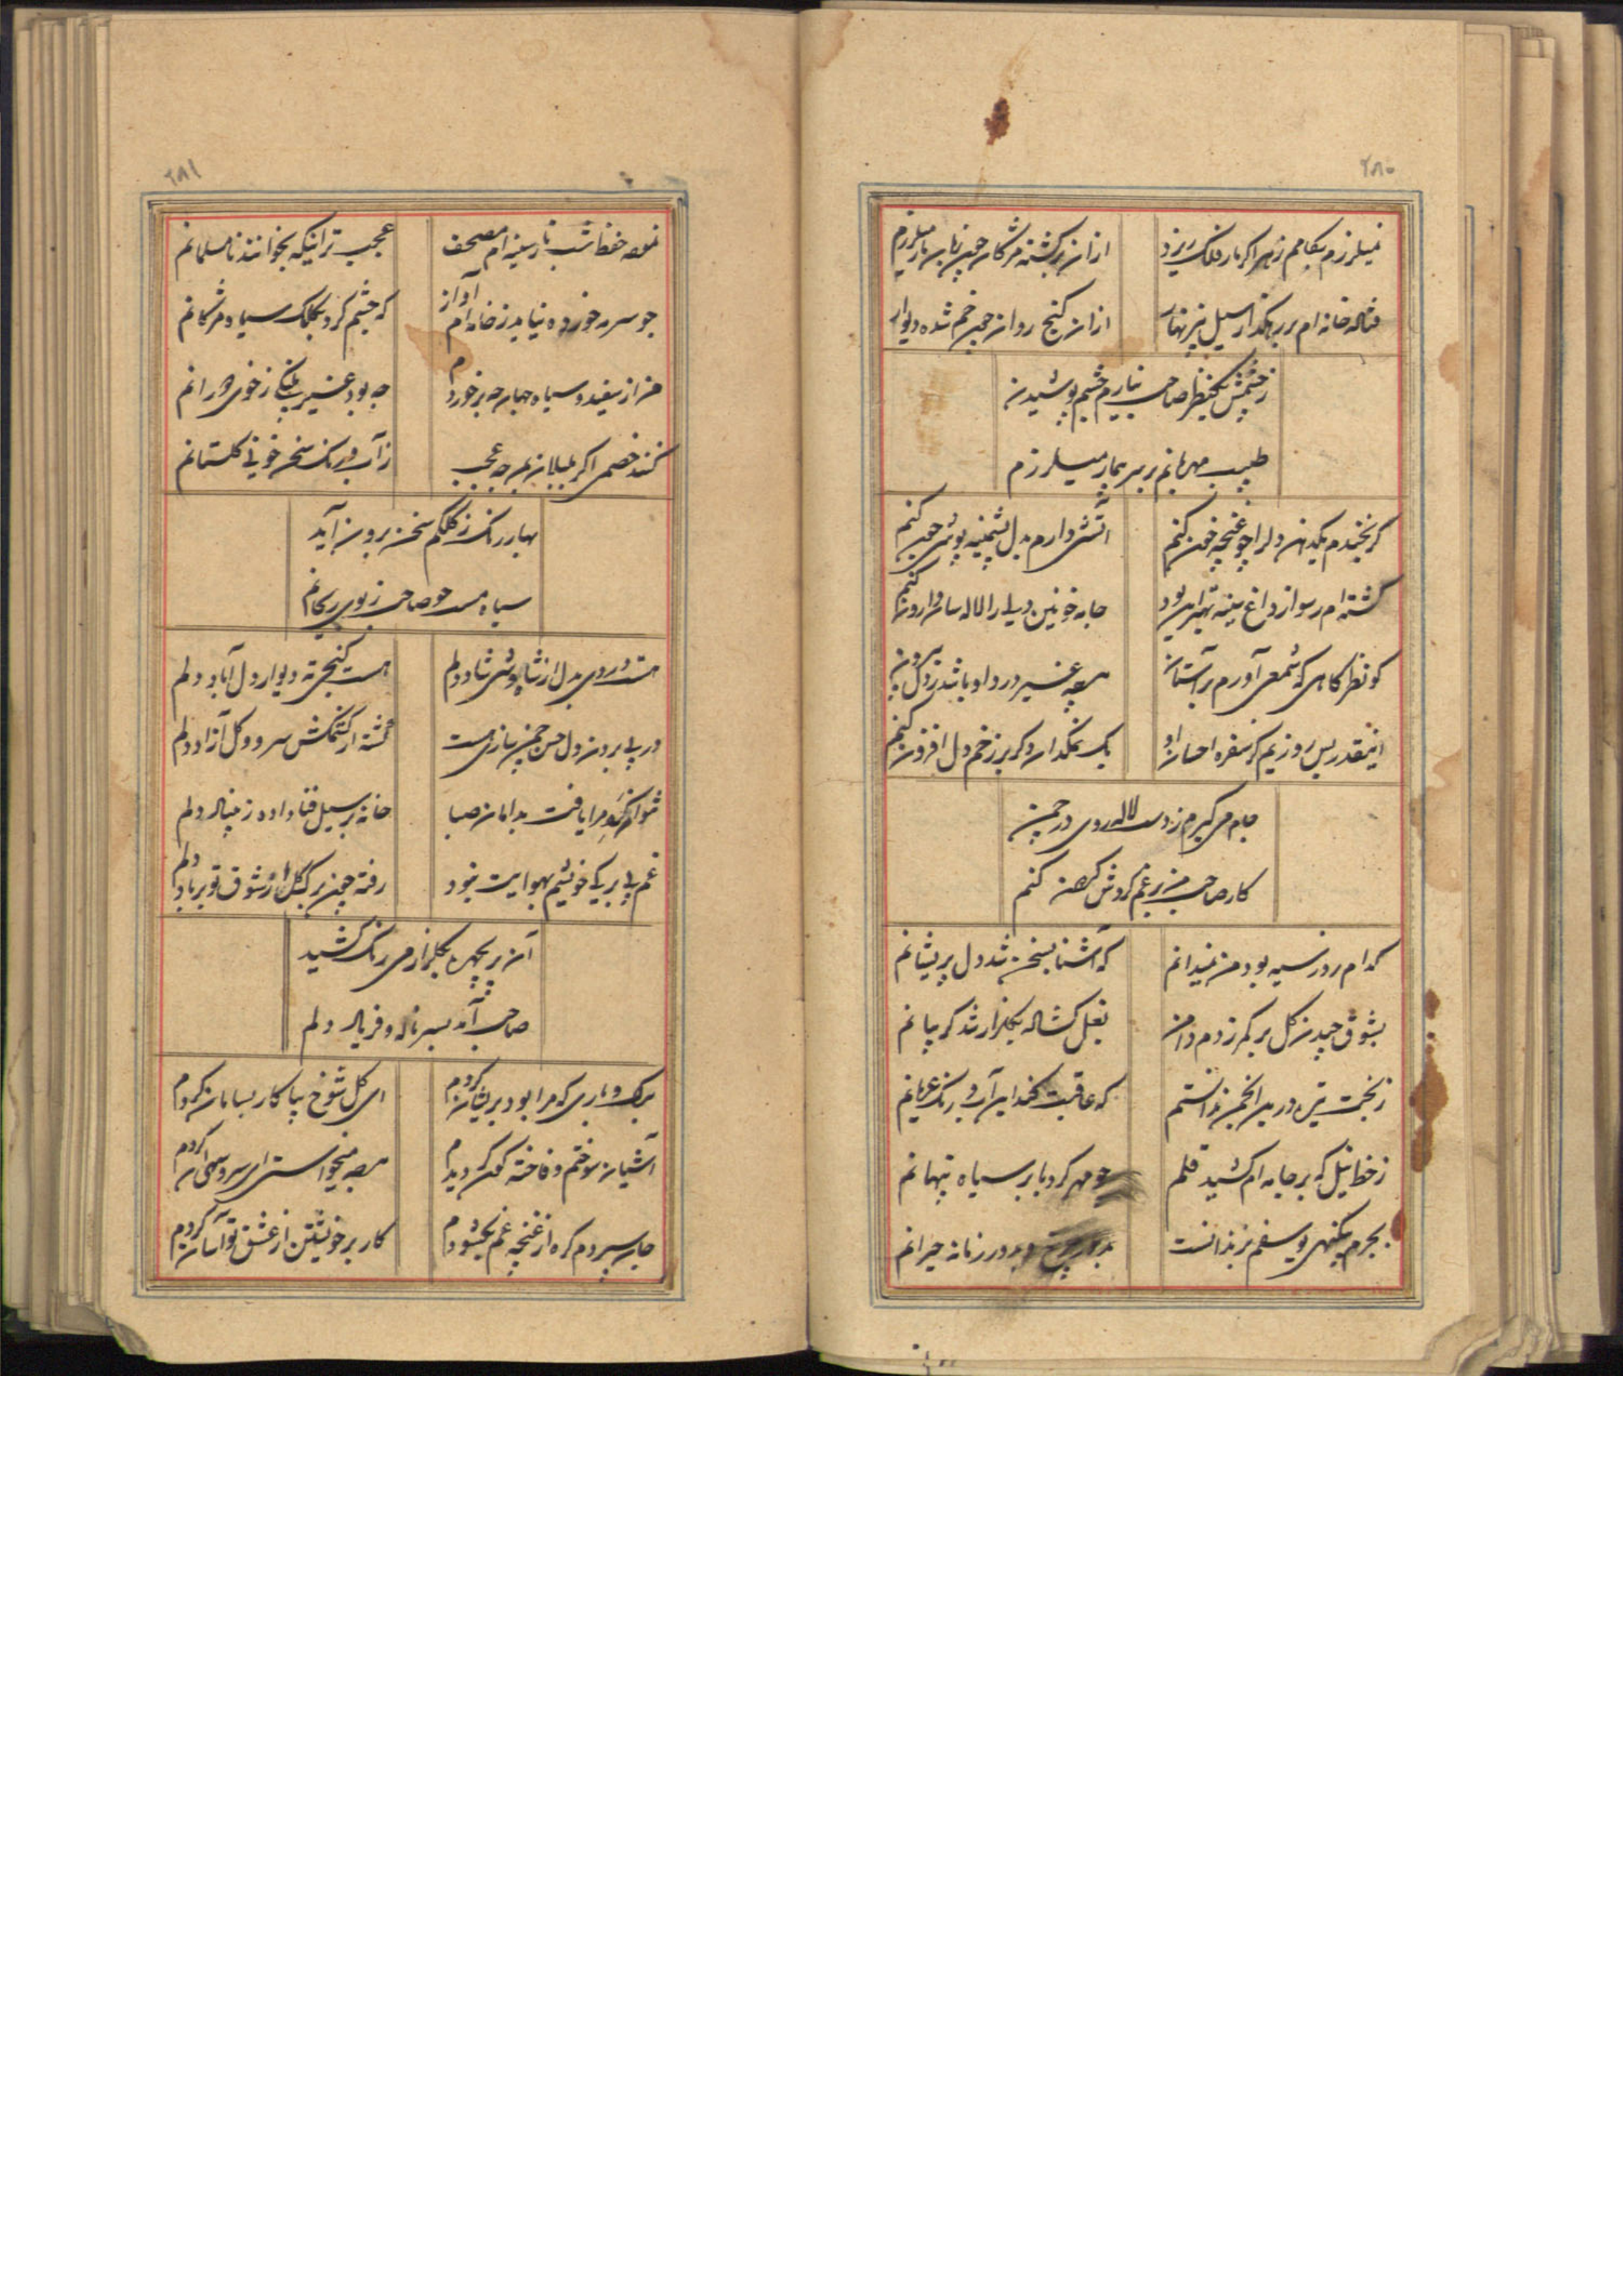 ۲۸۰
نمیلرزم بکامم زهر اگر بار فلک ریزد
ازان برگشته مژگان چون زبان مار میلرزم
فتاده خانه ام بر رهگذار سیل
ازان کنج روان چون خم شده دیوار
ز چشمش یکنظر صاحب نیارم چشم پوشیدن
طبیب مهربانم بر سر بیمار میلرزم
گر نخندم یکدهن دلرا چو غنچه خون کنم
آتشی دارم بدل پشمینه پوشی چون کنم
گشته ام رسوا ز داغ سینه
جامه خونین دلی را لاله سان وارون کنم
کو نظرگاهی که شمعی آورم بر آستان
هرچه غیر درد او باشد ز دل بیرون کنم
اینقدر بس روزیم کز سفره احسان او
یک نمکدان دگر بر زخم دل افزون کنم
جام می گیرم ز دست لاله روی در چمن
کار صاحب من برغم گردش گردون کنم
کدام روز سیه بود من نمیدانم
که آشنا بسخن شد دل پریشانم
بشوق چیدن گل بر کمر زدم دامن
بغل گشاده بگلزار شد گریبانم
ز بخت تیره درین انجمن ندانستم
که عاقبت کند این آب و رنگ عریانم
ز خط نیل که بر جامه ام کشید قلم
چو مهر کرد بابر سیاه پنهانم
بجرم بیگنهی یوسفم نزندانست
بدور چرخ و بدور زمانه حیرانم
۲۸۱
نموده حفظ شب تار سینه ام مصحف
عجب تر اینکه بخوانند نامسلمانم
چو سرمه خورده نیاید ز خامه ام آواز
که چشم کرد بکلک سیاه مژگانم
من از سفید و سیاه جهان چه برخوردم
چه بود غیر پلنگی ز خوی دورانم
کنند خصمی اگر بلبلان بمن چه عجب
ز آب و رنگ سخن خونی گلستانم
بهار رنگ ز کلکم سخن برون آید
سیاه مست چو صاحب ز بوی ریحانم
هست کنجی ته دیوار دل آباد دلم
در پی بردن دل حسن چمن سازی هست
گشته از کشمکش سرو و گل آزاد دلم
نتوان گرد مرا یافت بدامان صبا
خانه بر سیل فنا داده ز بنیاد دلم
غم بی برگی خویشم بهوایت نبود
رفته چون برگ گل از شوق تو بر باد دلم
آن پریچهره بگلزار می رنگ کشید
صاحب آمد بسر ناله و فریاد دلم
برگ و باری که مرا بود پریشان کردم
ای گل شوخ بیا کار بسامان کردم
آشیان سوختم و فاخته کوکو دیدم
هرچه میخواست ای سرو سهی آن کردم
جان سپردم گره از غنچه غم بگشودم
کار بر خویشتن از عشق تو آسان کردم